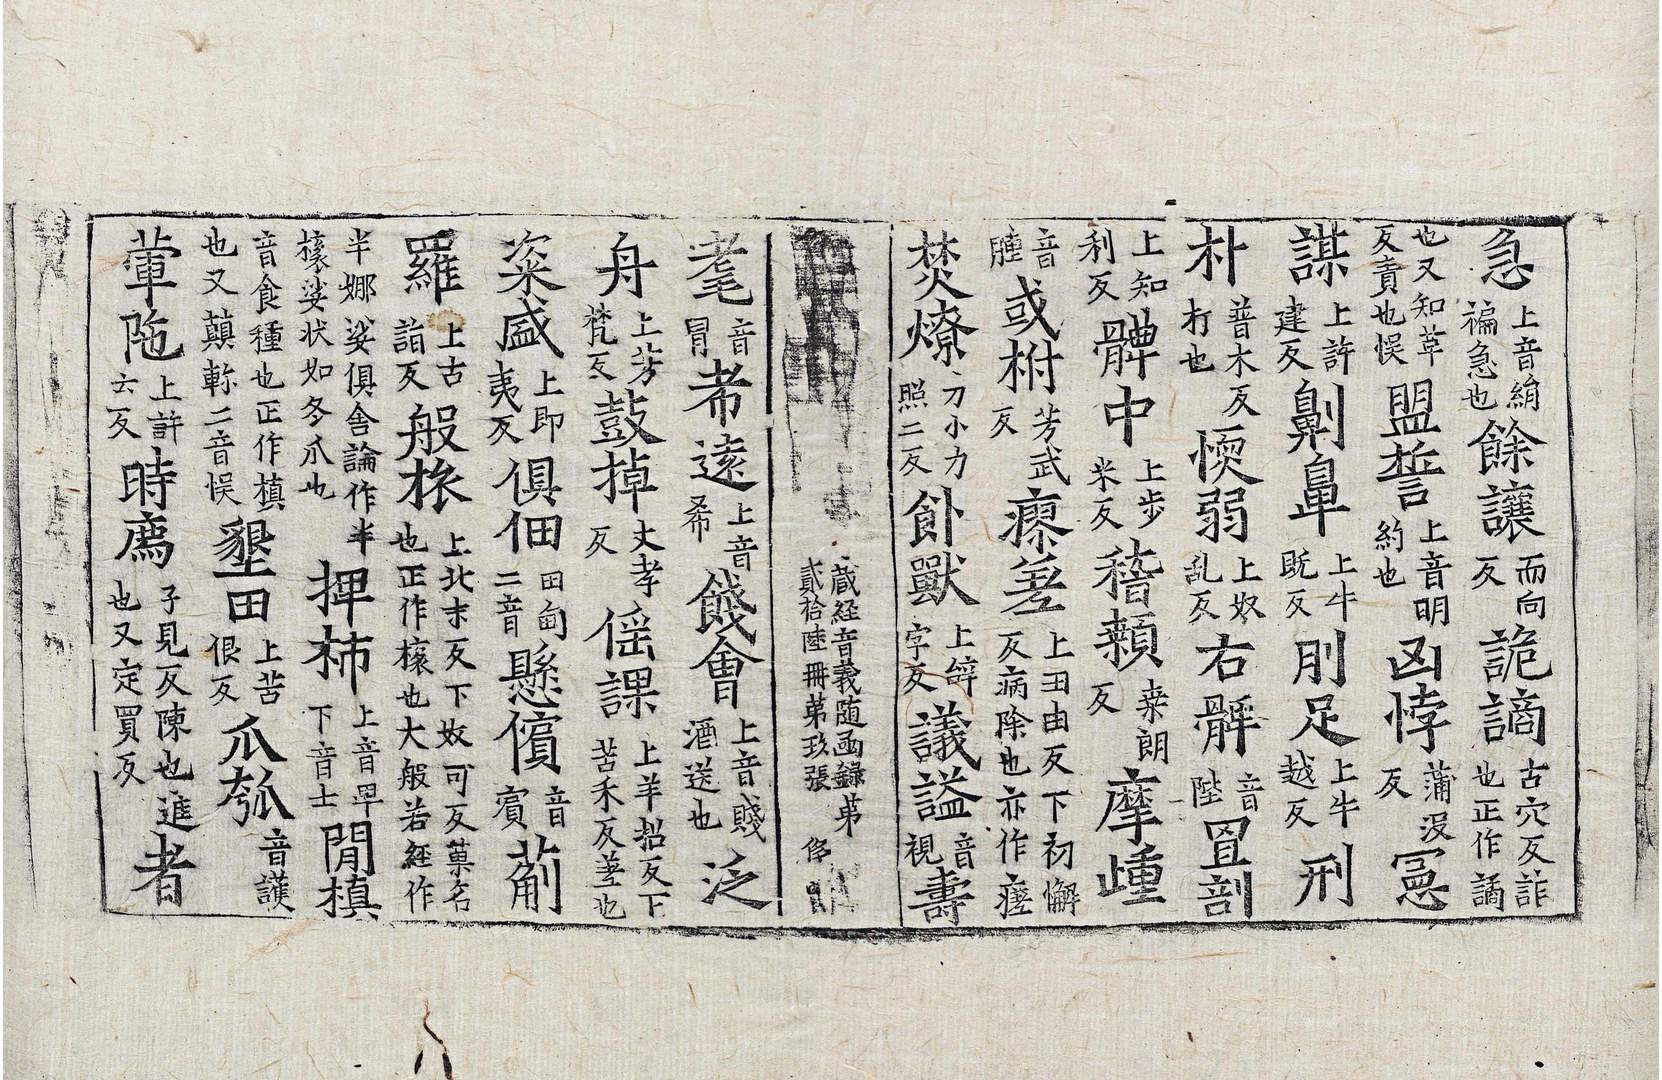 急上音絹褊急也餘讓而向反詭謫古穴反詐也正作譎
也又知革反責也悮盟誓上音明約也凶悖蒲没反冤
謀上許建反劓鼻上牛既反刖足上牛越反刑
朴普木反打也愞弱上奴乱反右髀音陛罝剖
上知利反髀中上步米反稽顙桒朗反摩㖶
音腫或柎芳武反瘝差上丑由反下初懈反病除也亦作瘥
焚燎刀小力照二反飰獸上辝字反議謚音視壽
藏経音義随函録弟貳拾陸冊弟玖張
耄音冐希逺上音希餞會上音賤酒送也泛
舟上芳梵反鼓掉丈孝反傜課上羊招反下苦禾反䒳也
粢盛上即夷反俱佃田甸二音懸儐音賔萷
羅上古詣反般㮈上北末反下奴可反菓名也正作㰠也大般若経作
半娜娑俱舎論作半㰠娑状如冬瓜也押柹上音甲下音士閒槙
音食種也正作槙也又顛軫二音悮墾田上苦很反瓜瓠音護
葷陁上許云反時廌子見反陳也進也又定買反者